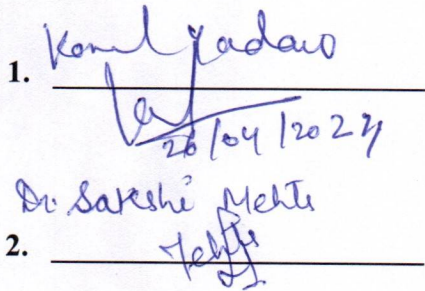 1. Komal Yadav
26/04/2024
Dr. Sakshi Mehta
2. Mehta